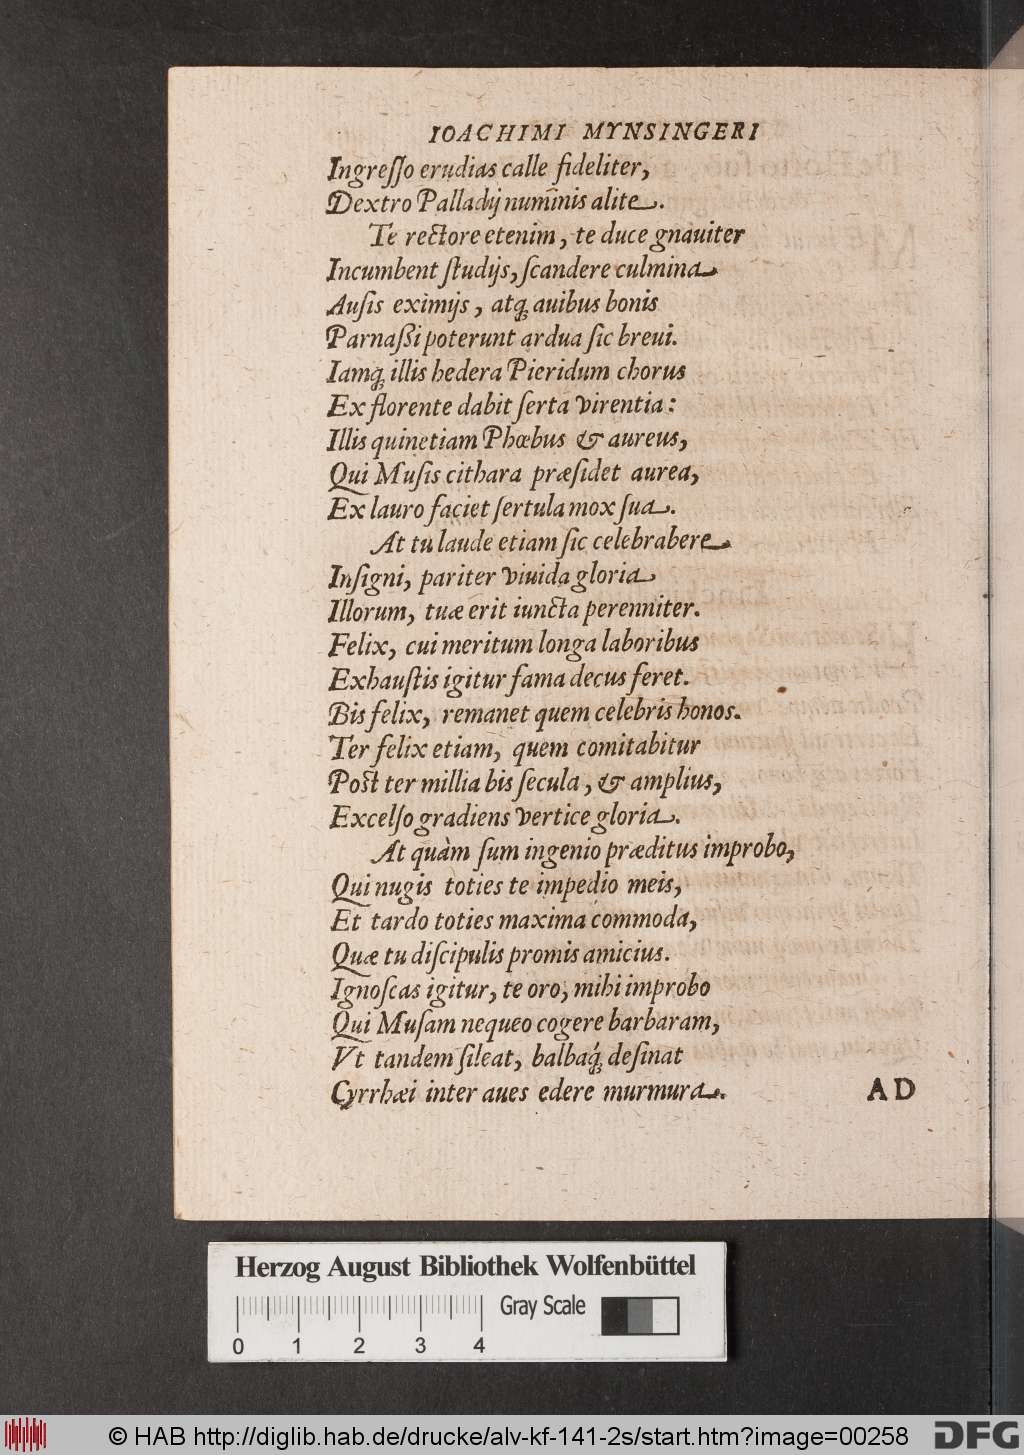 IOACHIMI MYNSINGERI
Ingreſſo erudias calle fideliter,
Dextro Palladij numinis alite.
Te rectore etenim, te duce gnauiter
Incumbent ſtudijs, ſcandere culmina
Auſis eximijs, atq́; auibus bonis
Parnaßi poterunt ardua ſic breui.
Iamq́; illis hedera Pieridum chorus
Ex florente dabit ſerta virentia:
Illis quinetiam Phœbus & aureus,
Qui Muſis cithara præſidet aurea,
Ex lauro faciet ſertula mox ſua.
At tu laude etiam ſic celebrabere
Inſigni, pariter viuida gloria
Illorum, tuæ erit iuncta perenniter.
Felix, cui meritum longa laboribus
Exhauſtis igitur fama decus feret.
Bis felix, remanet quem celebris honos.
Ter felix etiam, quem comitabitur
Poſt ter millia bis ſecula, & amplius,
Excelſo gradiens vertice gloria.
At quàm ſum ingenio præditus improbo,
Qui nugis toties te impedio meis,
Et tardo toties maxima commoda,
Quæ tu diſcipulis promis amicius.
Ignoſcas igitur, te oro, mihi improbo
Qui Muſam nequeo cogere barbaram,
Vt tandem ſileat, balbaq́; deſinat
Cyrrhæi inter aues edere murmura.
AD
Herzog August Bibliothek Wolfenbüttel
Gray Scale
0 1 2 3 4
© HAB http://diglib.hab.de/drucke/alv-kf-141-2s/start.htm?image=00258
DFG